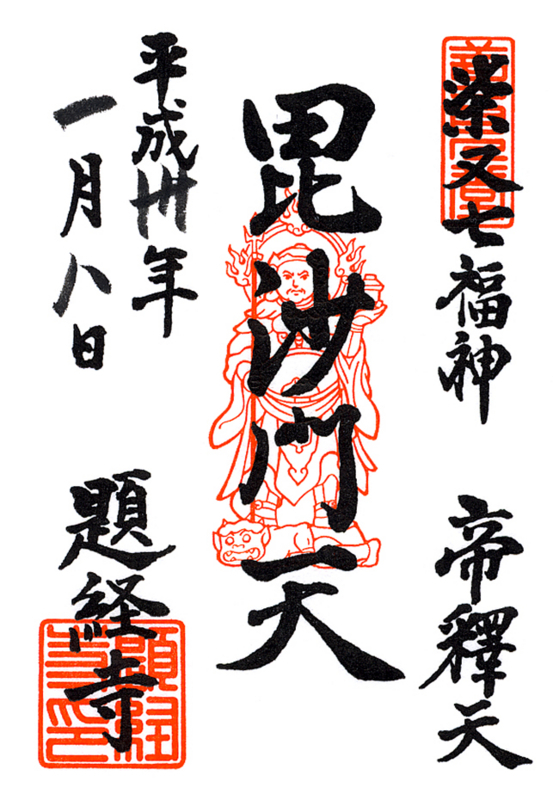 柴又七福神
帝釋天
毘沙門天
平成卅年
一月八日
題経寺
題経寺印